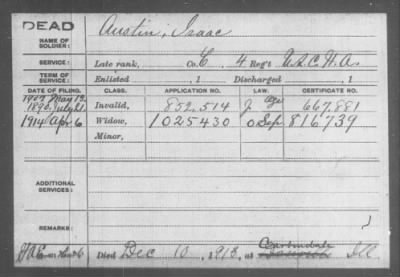 DEAD
NAME OF SOLDIER: Austin, Isaac
SERVICE: Late rank, Co. C, 4 Reg't U.S.C.H.A.
TERM OF SERVICE: Enlisted , 1 Discharged , 1
DATE OF FILING. CLASS. APPLICATION NO. LAW. CERTIFICATE NO.
1907 May 13.
1890, July 21. Invalid, 852,514 J age 667,881
1914 Apr. 6 Widow, 1025430 O Sep 816739
Minor,
ADDITIONAL SERVICES:
REMARKS:
Died Dec 10, 1913, at Carbondale Ill.